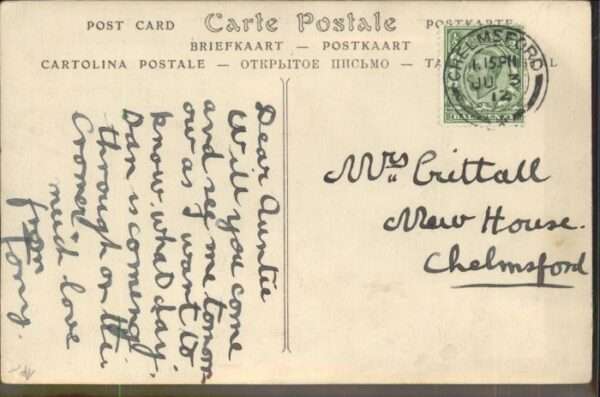 POST CARD Carte Postale POSTKARTE
BRIEFKAART — POSTKAART
CARTOLINA POSTALE — ОТКРЫТОЕ ПИСЬМО — TA
CHELMSFORD
1.15PM
JU
12
HALFPENNY
Mrs Crittall
New House.
Chelmsford
Dear Auntie
Will you come
and see me tomorr
ow as I want to
know what day
Dan is coming
through on the
much love
from